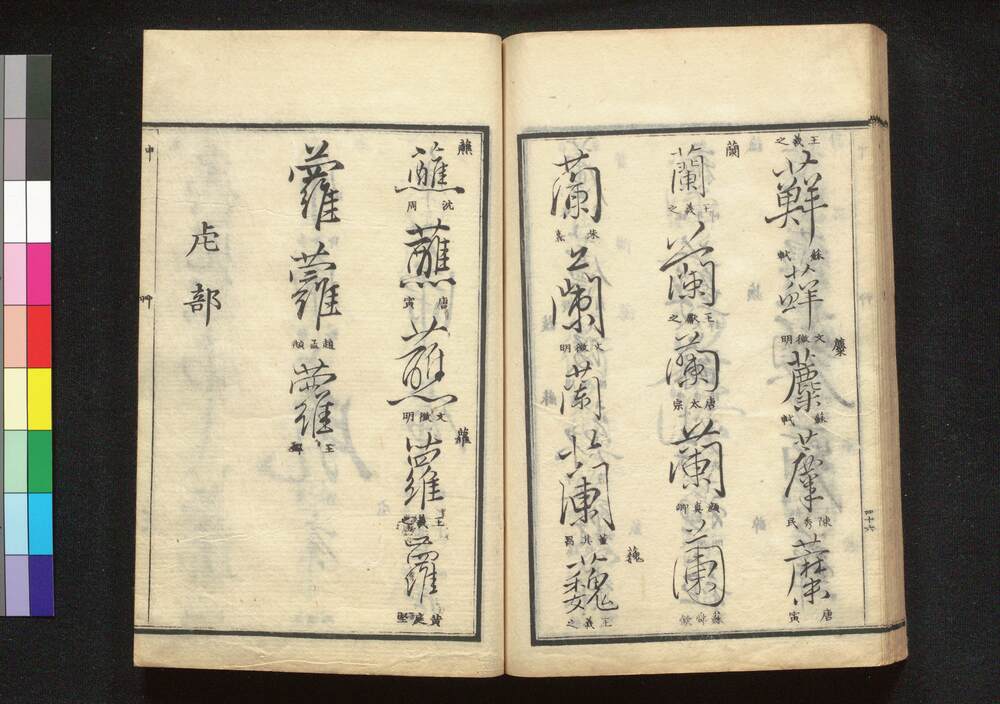 王羲之
蘚
蘇軾
蘚
文徵明
蘪
蘪
蘇軾
蘪
陳秀民
蘪
唐寅
蘭
蘭
王羲之
蘭
王獻之
蘭
唐太宗
蘭
顏真卿
蘭
蘇舜欽
蘭
朱熹
蘭
文徵明
蘭
蘭
董其昌
巍
王羲之
四十六
蘸
蘸
沈周
蘸
唐寅
蘸
文徵明
蘿
蘿
王羲之
蘿
黃庭堅
蘿
蘿
趙孟頫
蘿
王鐸
虍部
申
艸